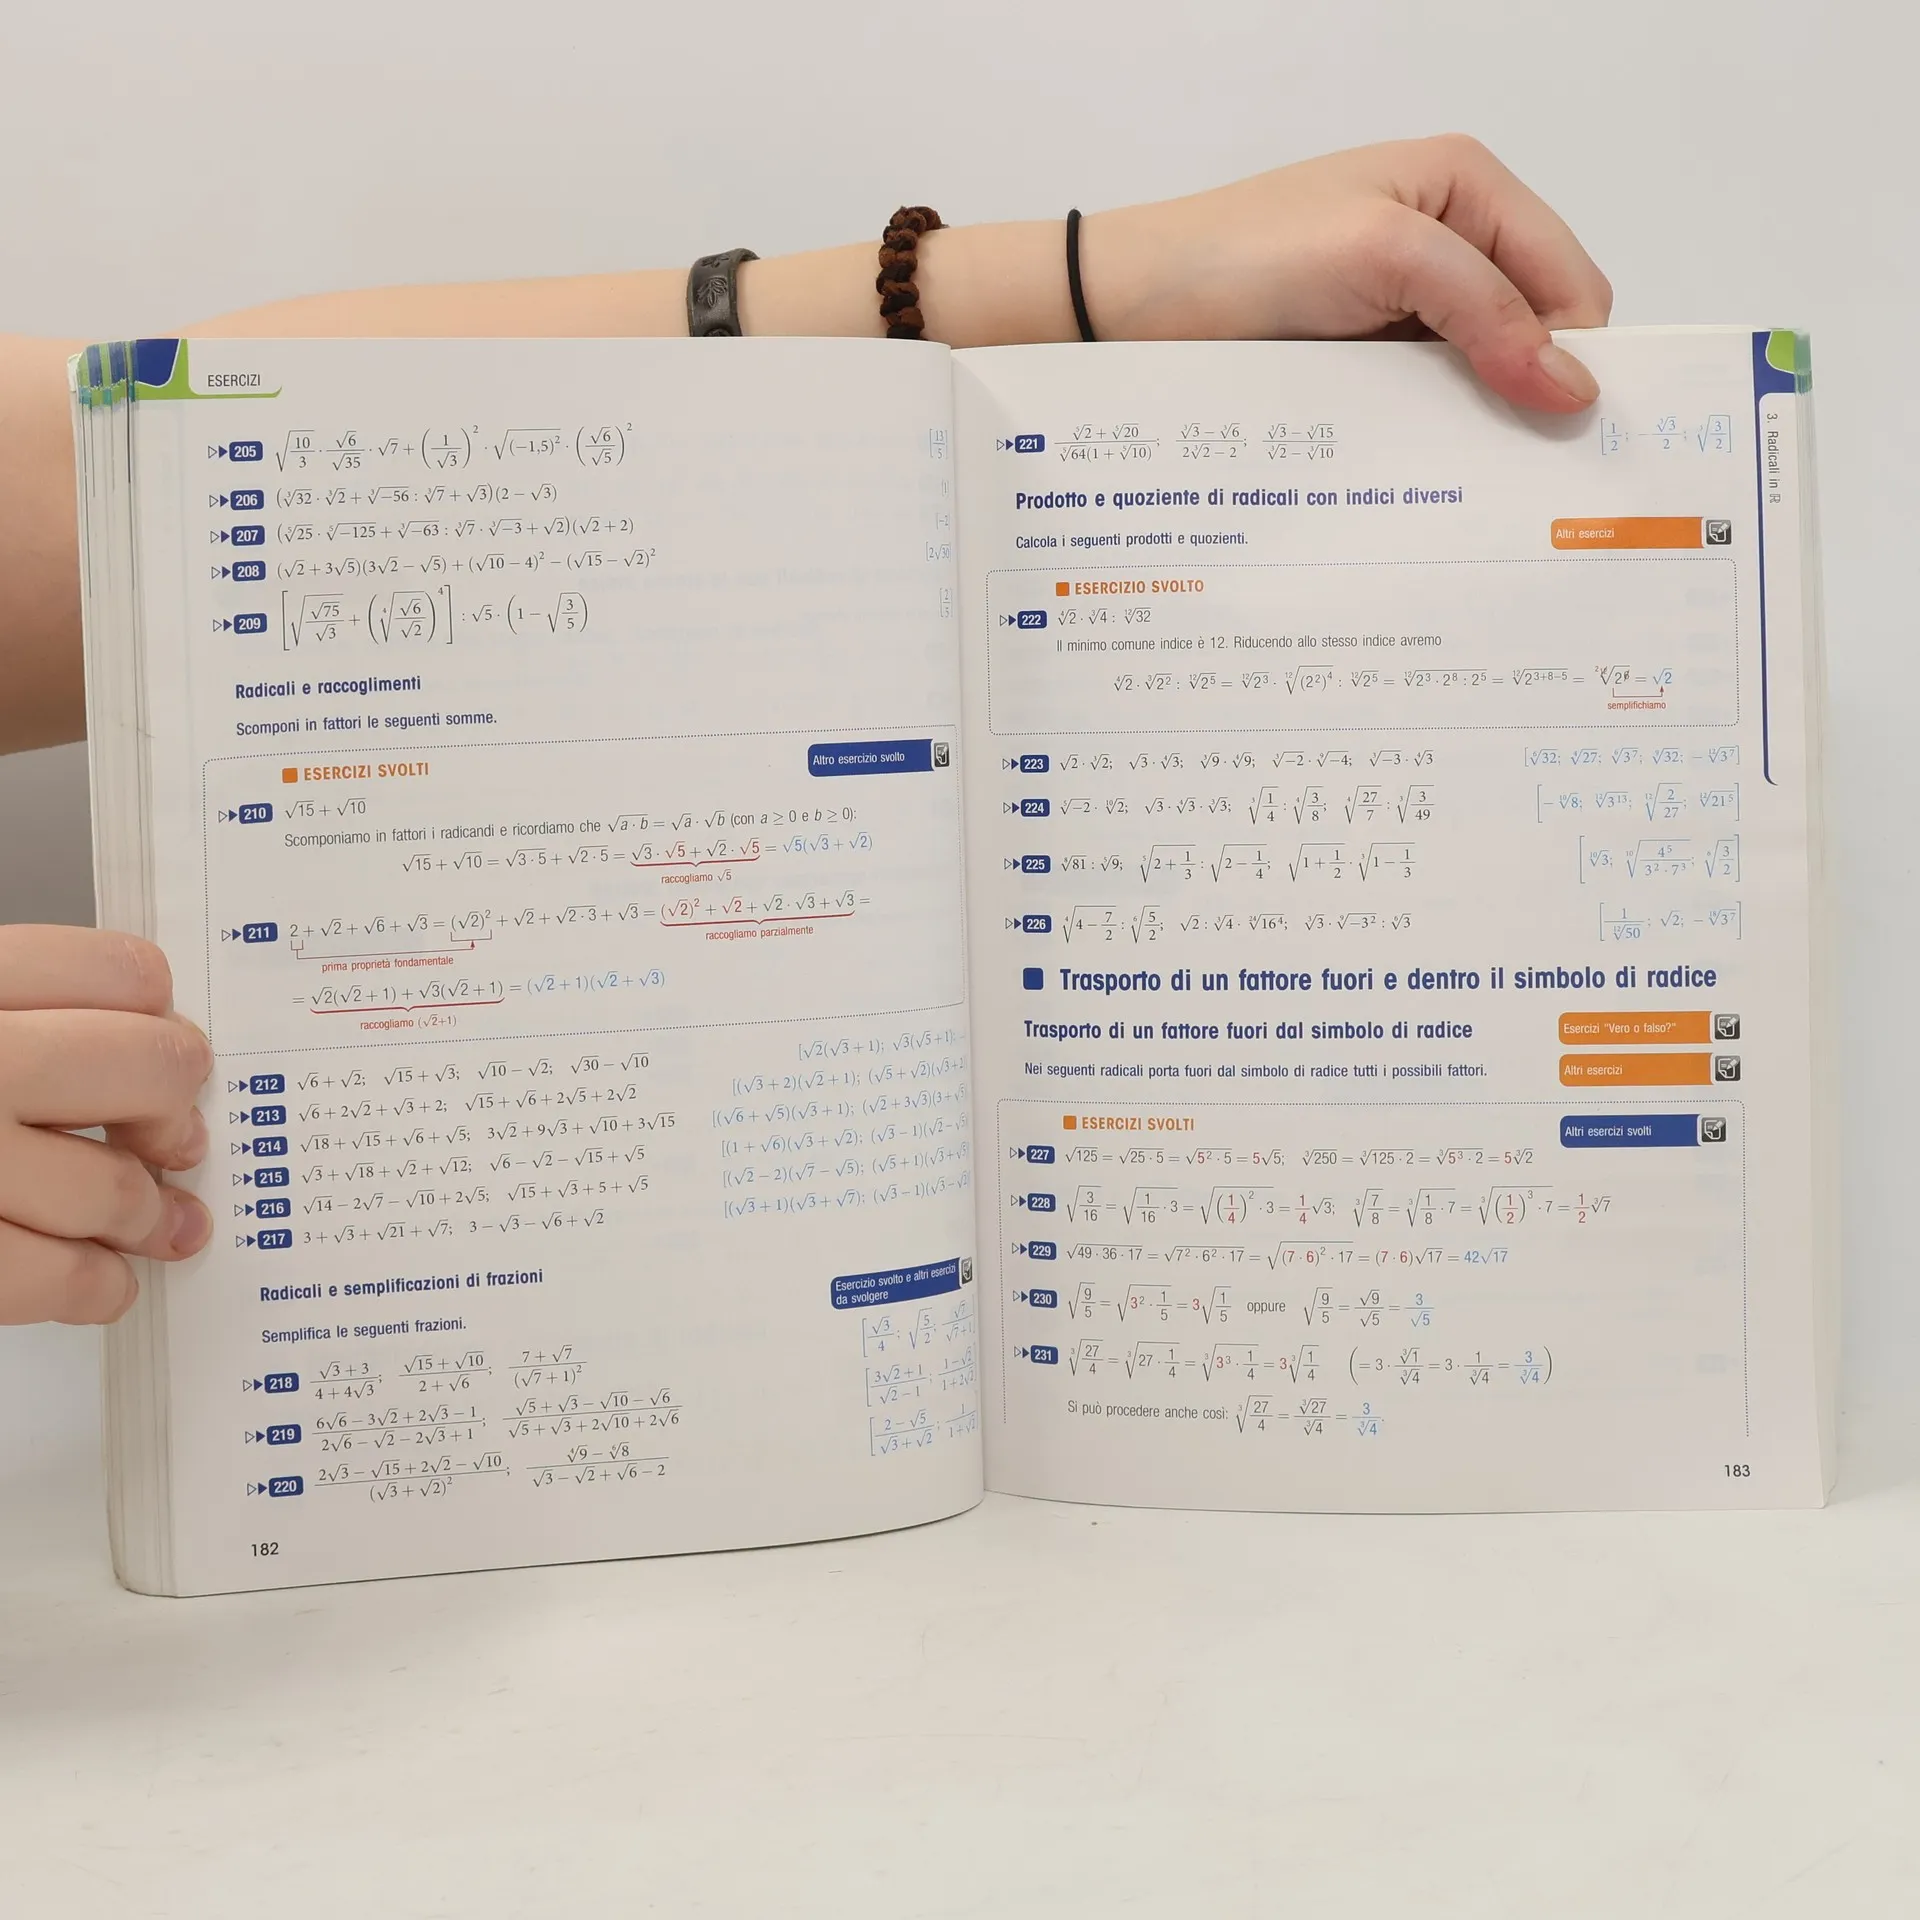 ESERCIZI
▷▶ 205 √(10/3) · √6/√35 · √7 + (1/√3)² · √((−1,5)²) · (√6/√5)² [13/5]
▷▶ 206 (∛32 · ∛2 + ∛−56 : ∛7 + √3)(2 − √3) [1]
▷▶ 207 (⁵√25 · ⁵√−125 + ∛−63 : ∛7 · ∛−3 + √2)(√2 + 2)
▷▶ 208 (√2 + 3√5)(3√2 − √5) + (√10 − 4)² − (√15 − √2)² [2√30]
▷▶ 209 [√(√75/√3) + (⁴√(√6/√2))⁴] : √5 · (1 − √(3/5)) [2/5]
Radicali e raccoglimenti
Scomponi in fattori le seguenti somme.
Altro esercizio svolto
ESERCIZI SVOLTI
▷▶ 210 √15 + √10
Scomponiamo in fattori i radicandi e ricordiamo che √(a · b) = √a · √b (con a ≥ 0 e b ≥ 0):
√15 + √10 = √(3 · 5) + √(2 · 5) = √3 · √5 + √2 · √5 = √5(√3 + √2)
raccogliamo √5
▷▶ 211 2 + √2 + √6 + √3 = (√2)² + √2 + √(2 · 3) + √3 = (√2)² + √2 + √2 · √3 + √3 =
raccogliamo parzialmente
prima proprietà fondamentale
= √2(√2 + 1) + √3(√2 + 1) = (√2 + 1)(√2 + √3)
raccogliamo (√2+1)
▷▶ 212 √6 + √2; √15 + √3; √10 − √2; √30 − √10 [√2(√3 + 1); √3(√5 + 1);
▷▶ 213 √6 + 2√2 + √3 + 2; √15 + √6 + 2√5 + 2√2 [(√3 + 2)(√2 + 1); (√5 + √2)(√3 + 2)
▷▶ 214 √18 + √15 + √6 + √5; 3√2 + 9√3 + √10 + 3√15 [(√6 + √5)(√3 + 1); (√2 + 3√3)(3 + √5)
▷▶ 215 √3 + √18 + √2 + √12; √6 − √2 − √15 + √5 [(1 + √6)(√3 + √2); (√3 − 1)(√2 − √5)
▷▶ 216 √14 − 2√7 − √10 + 2√5; √15 + √3 + 5 + √5 [(√2 − 2)(√7 − √5); (√5 + 1)(√3 + √5)
▷▶ 217 3 + √3 + √21 + √7; 3 − √3 − √6 + √2 [(√3 + 1)(√3 + √7); (√3 − 1)(√3 − √2)
Radicali e semplificazioni di frazioni
Esercizio svolto e altri esercizi
da svolgere
Semplifica le seguenti frazioni.
▷▶ 218 (√3 + 3)/(4 + 4√3); (√15 + √10)/(2 + √6); (7 + √7)/(√7 + 1)² [√3/4; √(5/2); √7/(√7+1)
▷▶ 219 (6√6 − 3√2 + 2√3 − 1)/(2√6 − √2 − 2√3 + 1); (√5 + √3 − √10 − √6)/(√5 + √3 + 2√10 + 2√6) [(3√2 + 1)/(√2 − 1); (1 − √2)/(1 + 2√2)
▷▶ 220 (2√3 − √15 + 2√2 − √10)/(√3 + √2)²; (⁴√9 − ⁶√8)/(√3 − √2 + √6 − 2) [(2 − √5)/(√3 + √2); 1/(1 + √2)
182
3. Radicali in ℝ
▷▶ 221 (∛2 + ∛20)/(∛64(1 + ∛10)); (∛3 − ∛6)/(2∛2 − 2); (∛3 − ∛15)/(∛2 − ∛10) [1/2; −∛3/2; ∛(3/2)]
Prodotto e quoziente di radicali con indici diversi
Calcola i seguenti prodotti e quozienti.
Altri esercizi
ESERCIZIO SVOLTO
▷▶ 222 ⁴√2 · ∛4 : ¹²√32
Il minimo comune indice è 12. Riducendo allo stesso indice avremo
⁴√2 · ∛2² : ¹²√2⁵ = ¹²√2³ · ¹²√((2²)⁴) : ¹²√2⁵ = ¹²√(2³ · 2⁸ : 2⁵) = ¹²√(2³⁺⁸⁻⁵) = ¹²√2⁶ = √2
semplifichiamo
▷▶ 223 √2 · ∛2; √3 · ∛3; √9 · ∛9; ∛−2 · ⁹√−4; ∛−3 · ⁴√3 [⁶√32; ⁴√27; ⁶√3⁷; ⁹√32; −¹²√3⁷]
▷▶ 224 ⁵√−2 · ¹⁰√2; √3 · ⁴√3 · ∛3; ∛(1/4) : ⁴√(3/8); ⁴√(27/7) : ∛(3/49) [−¹⁰√8; ¹²√3¹³; ¹²√(2/27); ¹²√21⁵]
▷▶ 225 ⁸√81 : ⁵√9; ⁵√(2 + 1/3) : √(2 − 1/4); √(1 + 1/2) · ∛(1 − 1/3) [¹⁰√3; ¹⁰√(4⁵/(3² · 7³)); ⁶√(3/2)]
▷▶ 226 ⁴√(4 − 7/2) : ⁶√(5/2); √2 : ∛4 · ²⁴√16⁴; ∛3 · ⁹√−3² : ⁶√3 [1/¹²√50; √2; −¹⁸√3⁷]
Trasporto di un fattore fuori e dentro il simbolo di radice
Trasporto di un fattore fuori dal simbolo di radice
Esercizi "Vero o falso?"
Nei seguenti radicali porta fuori dal simbolo di radice tutti i possibili fattori.
Altri esercizi
ESERCIZI SVOLTI
Altri esercizi svolti
▷▶ 227 √125 = √(25 · 5) = √(5² · 5) = 5√5; ∛250 = ∛(125 · 2) = ∛(5³ · 2) = 5∛2
▷▶ 228 √(3/16) = √(1/16 · 3) = √((1/4)² · 3) = 1/4 √3; ∛(7/8) = ∛(1/8 · 7) = ∛((1/2)³ · 7) = 1/2 ∛7
▷▶ 229 √(49 · 36 · 17) = √(7² · 6² · 17) = √((7 · 6)² · 17) = (7 · 6)√17 = 42√17
▷▶ 230 √(9/5) = √(3² · 1/5) = 3√(1/5) oppure √(9/5) = √9/√5 = 3/√5
▷▶ 231 ∛(27/4) = ∛(27 · 1/4) = ∛(3³ · 1/4) = 3∛(1/4) (= 3 · ∛1/∛4 = 3 · 1/∛4 = 3/∛4)
Si può procedere anche così: ∛(27/4) = ∛27/∛4 = 3/∛4.
183